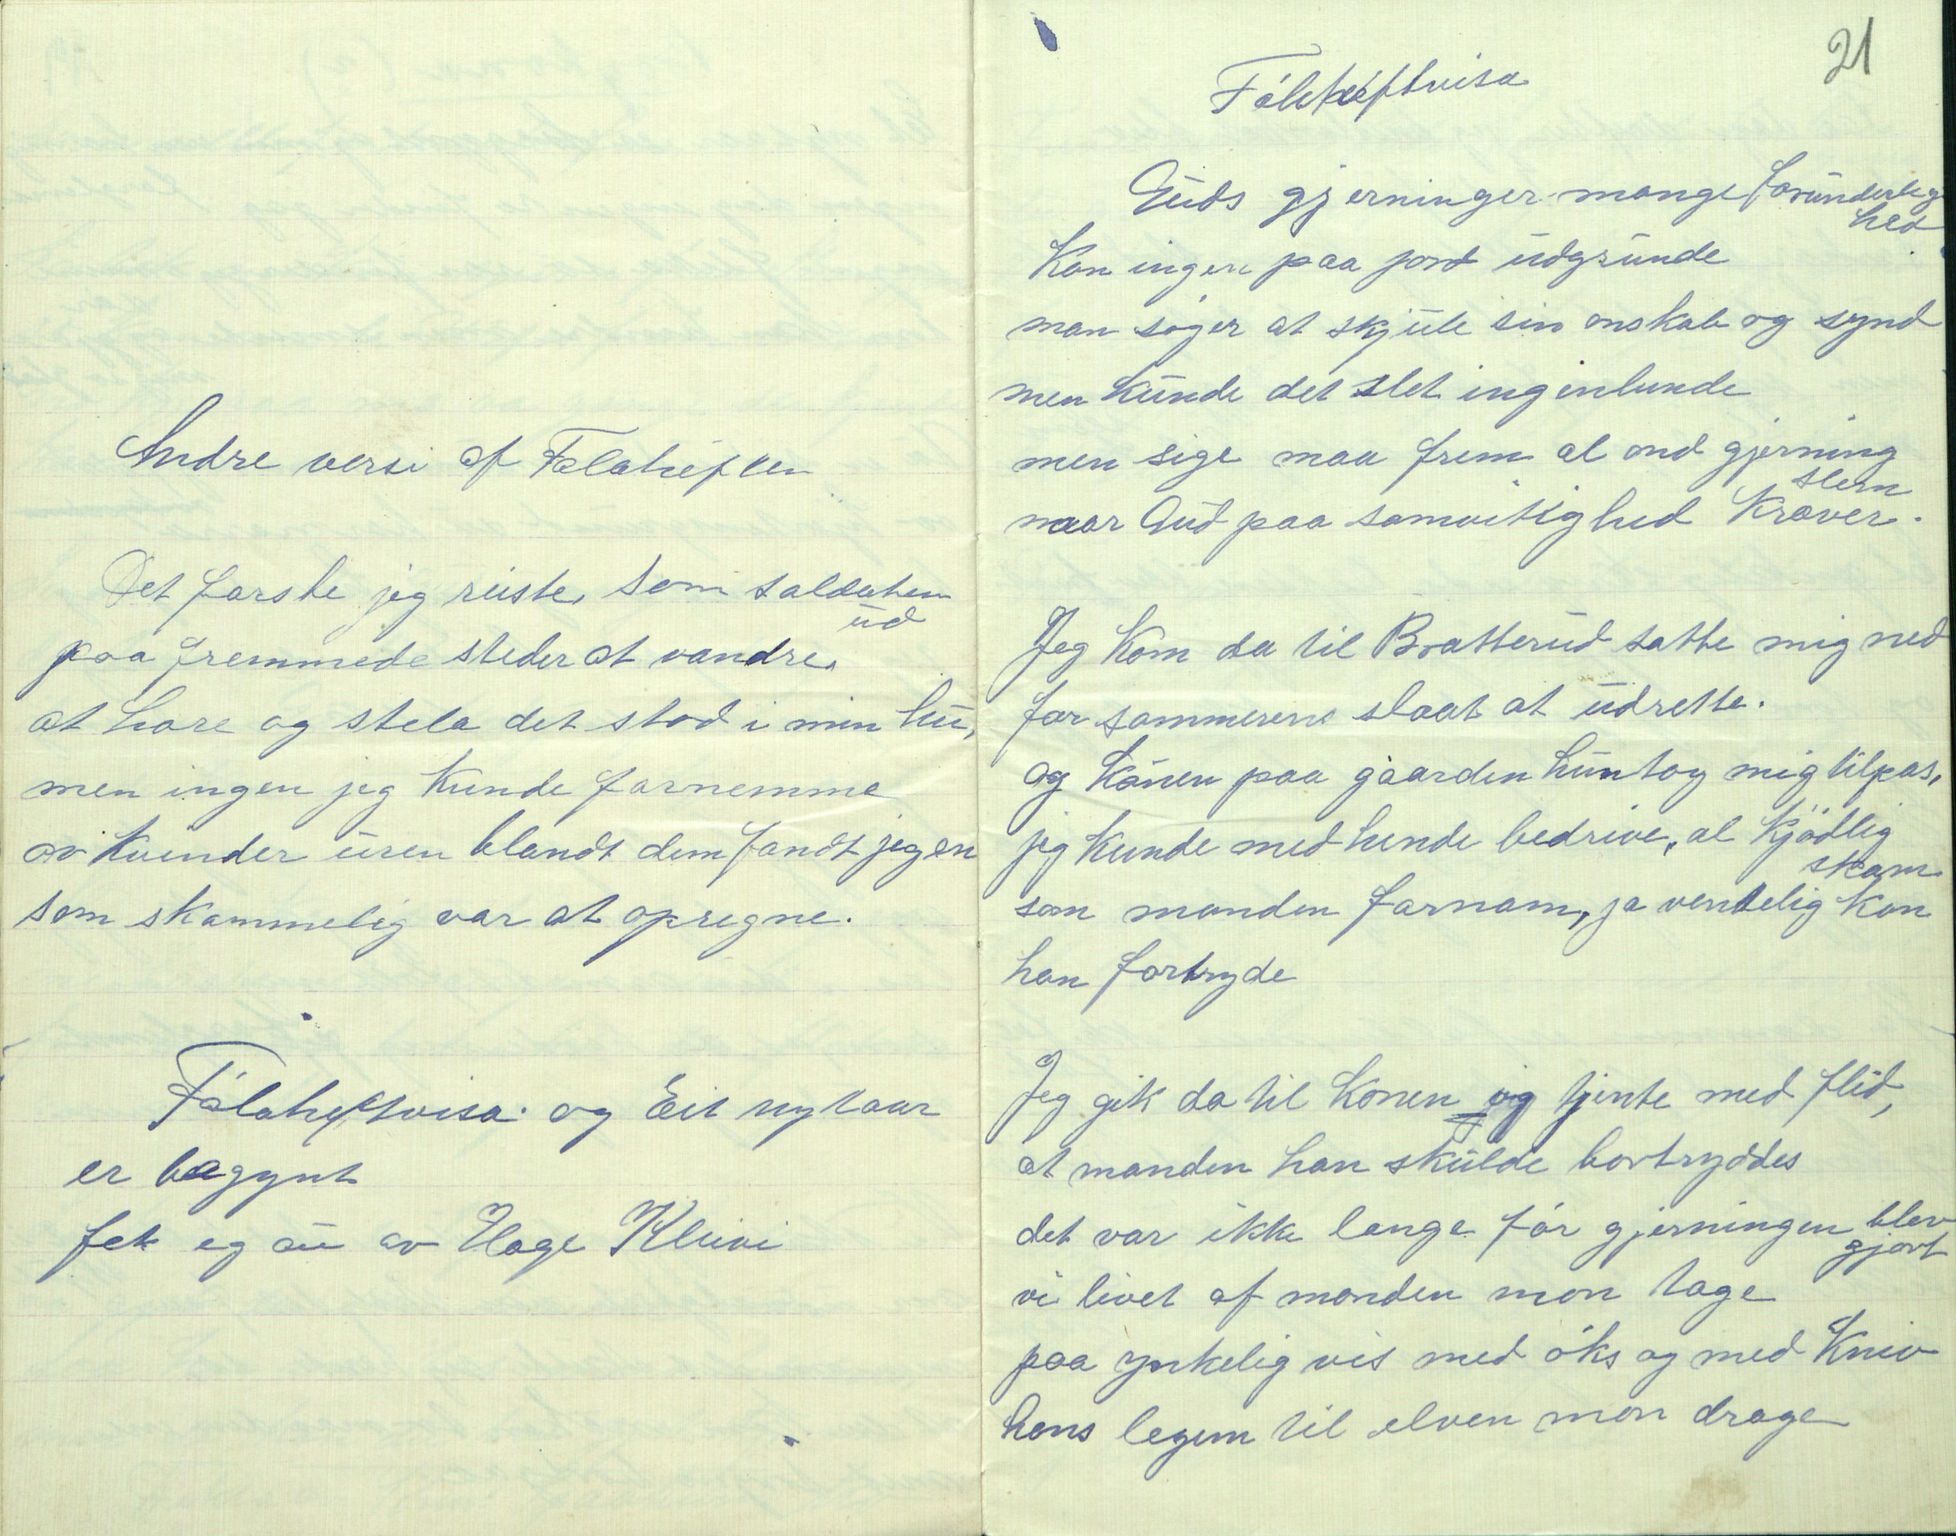 Andre versi af Falaheften
Det farste jeg reiste, som saldaten
ud
paa fremmede steder at vandre,
at hore og stela det stod i min hu,
men ingen jeg kunde farnemme
av kvinder uren blandt dem fandt jeg en
som skammelig var at opregne.
Fólaheftvisa og Eit nytaar
er begynt
fek eg au av Hage Kleivi
21
Fólaheftvisa
Guds gjerninger mange forunderlig
hed
kan ingen paa jord udgrunde
man sóger at skjule sin onskab og synd
men kunde det slet ingenlunde
men sige maa frem al ond gjerning
slem
naar Gud paa samvitighed kraver.
Jeg kom da til Bratterud satte mig ned
for sommeren slaat at udrette.
og konen paa gaarden hun tog mig tilpas,
jeg kunde med hende bedrive, al kjódlig
skam
som manden farnam, ja vendelig kan
han fortryde
Jeg gik da til konen og tjente med flid,
at manden han skulde bortryddes
det var ikke lange fór gjerningen blev
gjort
vi livet af manden mon tage
paa ynkelig vis med óks og med kniv
hans legem til elven mon drage